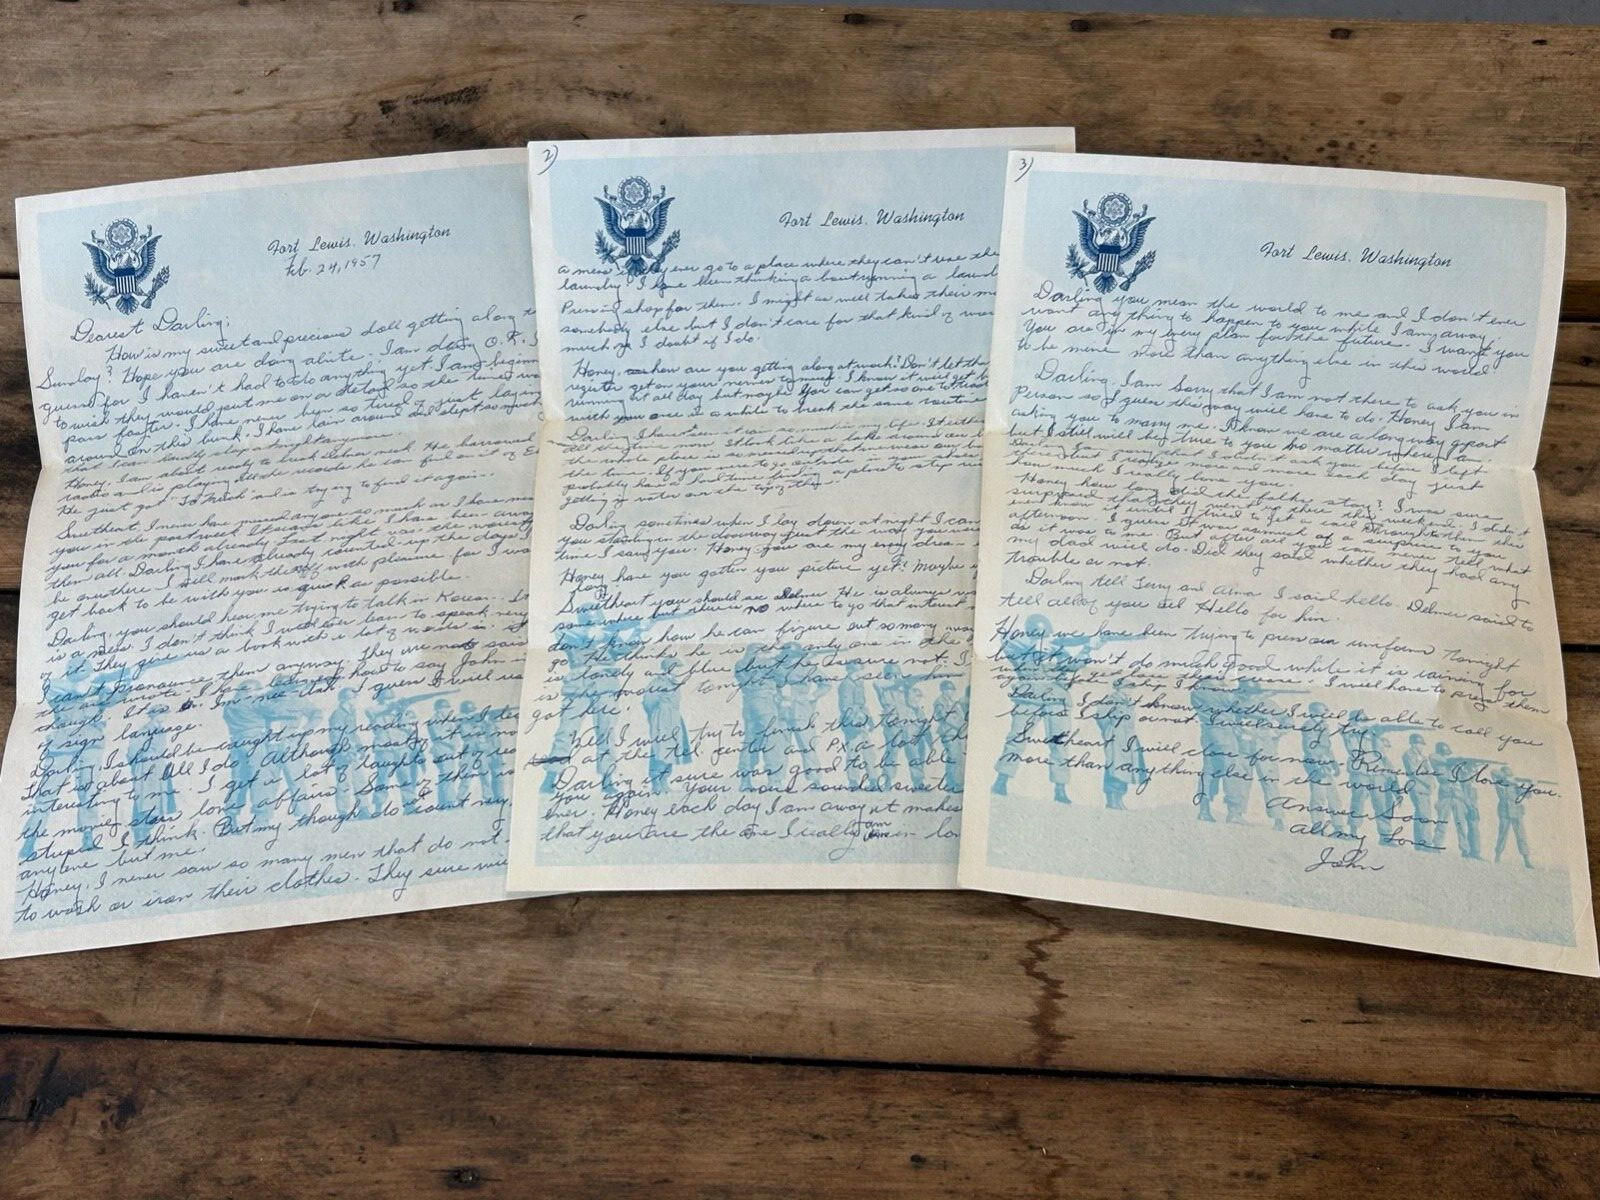 Fort Lewis, Washington
Feb. 24, 1957
Dearest Darling;
How is my sweet and precious doll getting along
Sunday? Hope you are doing alrite. I am doing O.K. I
guess for I haven't had to do anything yet. I am beginn
to wish they would put me on a detail so the time
pass faster. I have never been so tired of just laying
around on this bunk. I have lain around and slept so much
that I can hardly sleep anymore.
Honey, I am about ready to break Delmer neck. He borrowed
radio and is playing all the records he can find on it of
He just got and is trying to find it again.
Sweetheart, I never have missed anyone so much as I have
you in the past week. It seems like I have been away
you for a month already. Last night was the
them all. Darling I have already counted up the days I
be over there. I will mark them off with pleasure for I
get back to be with you is quick as possible.
Darling, you should hear me trying to talk in Korean. It
is a mess. I don't think I will ever learn to speak very
of it. They give us a book with a lot of words in.
I can't pronounce them anyway. They are not said
the are wrote. I have learned how to say John
though. It is I guess I will
of sign language.
Darling, I should be caught up my reading when I
That is about all I do. Although most of it is not
interesting to me. I get a lot of laughs out of
the movie stars love affairs. Some of them is
stupid I think. But my though do not count very
anyone but me.
Honey, I never saw so many men that do not
to wash or iron their clothes. They sure
2)
Fort Lewis, Washington
a mess if they ever go to a place where they can't use the
laundry. I have been thinking about running a laund
Pressing shop for them. I might as well take their
somebody else but I don't care for that kind of
much so I doubt if I do.
Honey, how are you getting along at work? Don't let the
register get on your nerves to much. I know it
running it all day but maybe you can get someone to trade
with you once in a while to break the same routine
Darling I have never seen it rain so much in my life.
all the time. It look like a lake around
the whole place is so messed up that we wear our
the time. If you were to go outside in your shoes
probably have a hard time finding a place to step
getting in water over the top of them.
Darling sometimes when I lay down at night I can
you standing in the doorway just the way you
time I saw you. Honey, you are my every
Honey have you gotten you picture yet? Maybe
long.
Sweetheart you should see Delmer. He is always
some where but there is no where to go that interest
don't know how he can figure out so many
go. He thinks he is the only one in the
is lonely and blue but he is sure not. I
is the modest tonight I have seen him
got here.
Well I will try to finish this tonight
at the tel. center and PX a lot
Darling it sure was good to be able
you again. Your voice sounded sweeter
ever. Honey each day I am away it makes
that you are the one I really am in lo
3)
Fort Lewis, Washington
Darling you mean the world to me and I don't ever
want any thing to happen to you while I am away.
You are in my every plan for the future. I want you
to be mine more than anything else in this world
Darling, I am sorry that I am not there to ask you in
person so I guess this way will have to do. Honey, I am
asking you to marry me. I know we are a long way apart
but I still will be true to you no matter where I am.
Darling I am sorry that I didn't ask you before I left
there but I realize more and more each day just
how much I really love you.
Honey how long did the folks stay? I was sure
surprised that they went up there this weekend. I didn't
know it until I tried to get a call through to them this
afternoon. I guess it was as much of a surprise to you
as it was to me. But after all you can never tell what
my dad will do. Did they said whether they had any
trouble or not.
Darling tell Terry and Alma I said hello. Delmer said to
tell all of you all Hello for him.
Honey we have been trying to press our uniform tonight
but it won't do much good while it is raining for
I will have to press them
again before I ship I know.
Darling I don't know whether I will be able to call you
before I ship or not. I will surely try.
Sweetheart I will close for now. Remember I love you
more than anything else in the world
Answer Soon
All my Love
John